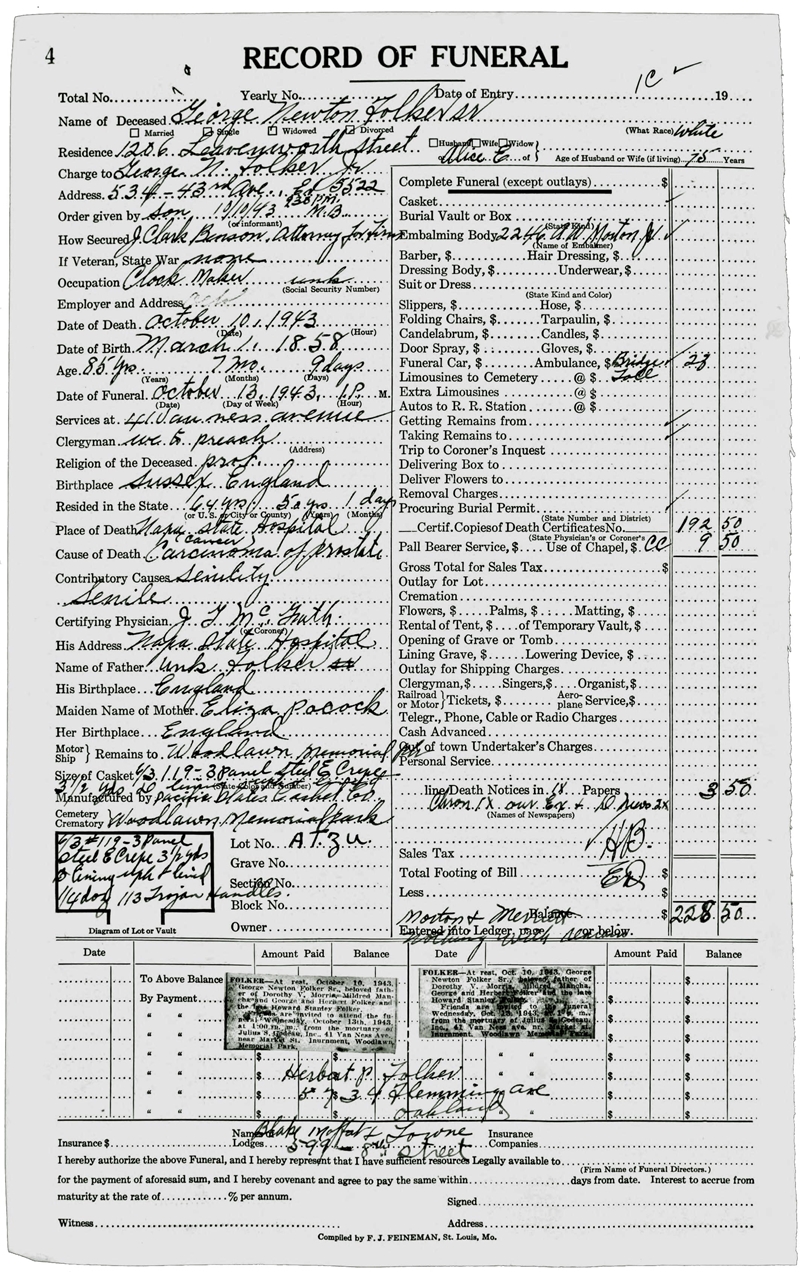 4
RECORD OF FUNERAL
Total No. Yearly No. Date of Entry 19
Name of Deceased George Newton Folker Sr
Married Single Widowed Divorced
(What Race) White
Residence 1206 Leavenworth Street
Husband Wife Widow of Alice E.
Age of Husband or Wife (if living) 75 Years
Charge to George N. Folker Jr
Address 534-43rd Ave. 5522
Order given by son 10/10/43 M.B.
(or informant)
How Secured J. Clark Benson, Attorney
If Veteran, State War none
Occupation Clock Maker unk
(Social Security Number)
Employer and Address
Date of Death October 10, 1943
(Date) (Hour)
Date of Birth March 1, 1858
Age 85 yrs. 7 mo. 9 days
(Years) (Months) (Days)
Date of Funeral October 13, 1943, 1 P. M.
(Date) (Day of Week) (Hour)
Services at 41 Van ness avenue
Clergyman we to preach
(Address)
Religion of the Deceased prof.
Birthplace Sussex England
Resided in the State 64 yrs. 50 yrs. 1 day
(or U. S., City or County) (Years) (Months)
Place of Death Napa State Hospital
(cancer)
Cause of Death Carcinoma of prostate
Contributory Causes Senility
Senile
Certifying Physician J. McGrath
(or Coroner)
His Address Napa State Hospital
Name of Father unk Folker
His Birthplace England
Maiden Name of Mother Eliza Pocock
Her Birthplace England
Motor Ship } Remains to Woodlawn Memorial
Size of Casket 6/3 #119-3 Panel Steel E Crepe
3 1/2 yds
(State Color and Number)
Manufactured by Pacific States Casket Co
Cemetery Crematory Woodlawn Memorial Park
6/3 #119-3 Panel
Steel E Crepe 3 1/2 yds
lining
1/4 doz 113 Trojan Handles
Diagram of Lot or Vault
Lot No.
Grave No.
Section No.
Block No.
Owner
Complete Funeral (except outlays) $
Casket
Burial Vault or Box
(State Kind)
Embalming Body 2246 W. Morton Jr
(Name of Embalmer)
Barber, $ Hair Dressing, $
Dressing Body, $ Underwear, $
Suit or Dress
(State Kind and Color)
Slippers, $ Hose, $
Folding Chairs, $ Tarpaulin, $
Candelabrum, $ Candles, $
Door Spray, $ Gloves, $
Funeral Car, $ Ambulance, $ Bridge Toll 23
Limousines to Cemetery @ $
Extra Limousines @ $
Autos to R. R. Station @ $
Getting Remains from
Taking Remains to
Trip to Coroner's Inquest
Delivering Box to
Deliver Flowers to
Removal Charges
Procuring Burial Permit
(State Number and District)
Certif. Copies of Death Certificates No. 192 50
(State Physician's or Coroner's)
Pall Bearer Service, $ Use of Chapel, $ CC 9 50
Gross Total for Sales Tax $
Outlay for Lot
Cremation
Flowers, $ Palms, $ Matting, $
Rental of Tent, $ of Temporary Vault, $
Opening of Grave or Tomb
Lining Grave, $ Lowering Device, $
Outlay for Shipping Charges
Clergyman, $ Singers, $ Organist, $
Railroad or Motor } Tickets, $ Aeroplane Service, $
Telegr., Phone, Cable or Radio Charges
Cash Advanced
Out of town Undertaker's Charges
Personal Service
line Death Notices in Papers 3 50
Chron 1x our Ex + D. News 2x
(Names of Newspapers)
Sales Tax
Total Footing of Bill $
Less
Balance $ 228 50
Morton + Merrill
Entered into Ledger, page or below.
nothing with
Date Amount Paid Balance DATE Amount Paid Balance
To Above Balance
By Payment
FOLKER—At rest, October 10, 1943, George Newton Folker Sr., beloved father of Dorothy V. Morris, Mildred Mancha and George and Herbert Folker and the late Howard Stanley Folker.
Friends are invited to attend the funeral Wednesday, October 13th, 1943, at 1:00 p. m., from the mortuary of Julius S. Godeau, Inc., 41 Van Ness Ave. near Market St. Inurnment, Woodlawn Memorial Park.
FOLKER—At rest, Oct. 10, 1943, George Newton Folker Sr., beloved father of Dorothy V. Morris, Mildred Mancha, George and Herbert Folker and the late Howard Stanley Folker.
Friends are invited to the funeral Wednesday, Oct. 13, 1943, at 1 p. m., from the mortuary of Julius S. Godeau, Inc., 41 Van Ness Ave. nr. Market st. Inurnment, Woodlawn Memorial Park.
Herbert P. Folker
5734 Flemming ave
Oakland
Blake Moffat & Towne
599 - 8th Street
Insurance $ Names of Lodges Insurance Companies
I hereby authorize the above Funeral, and I hereby represent that I have sufficient resources Legally available to
(Firm Name of Funeral Directors.)
for the payment of aforesaid sum, and I hereby covenant and agree to pay the same within days from date. Interest to accrue from
maturity at the rate of % per annum.
Signed
Witness Address
Compiled by F. J. FEINEMAN, St. Louis, Mo.